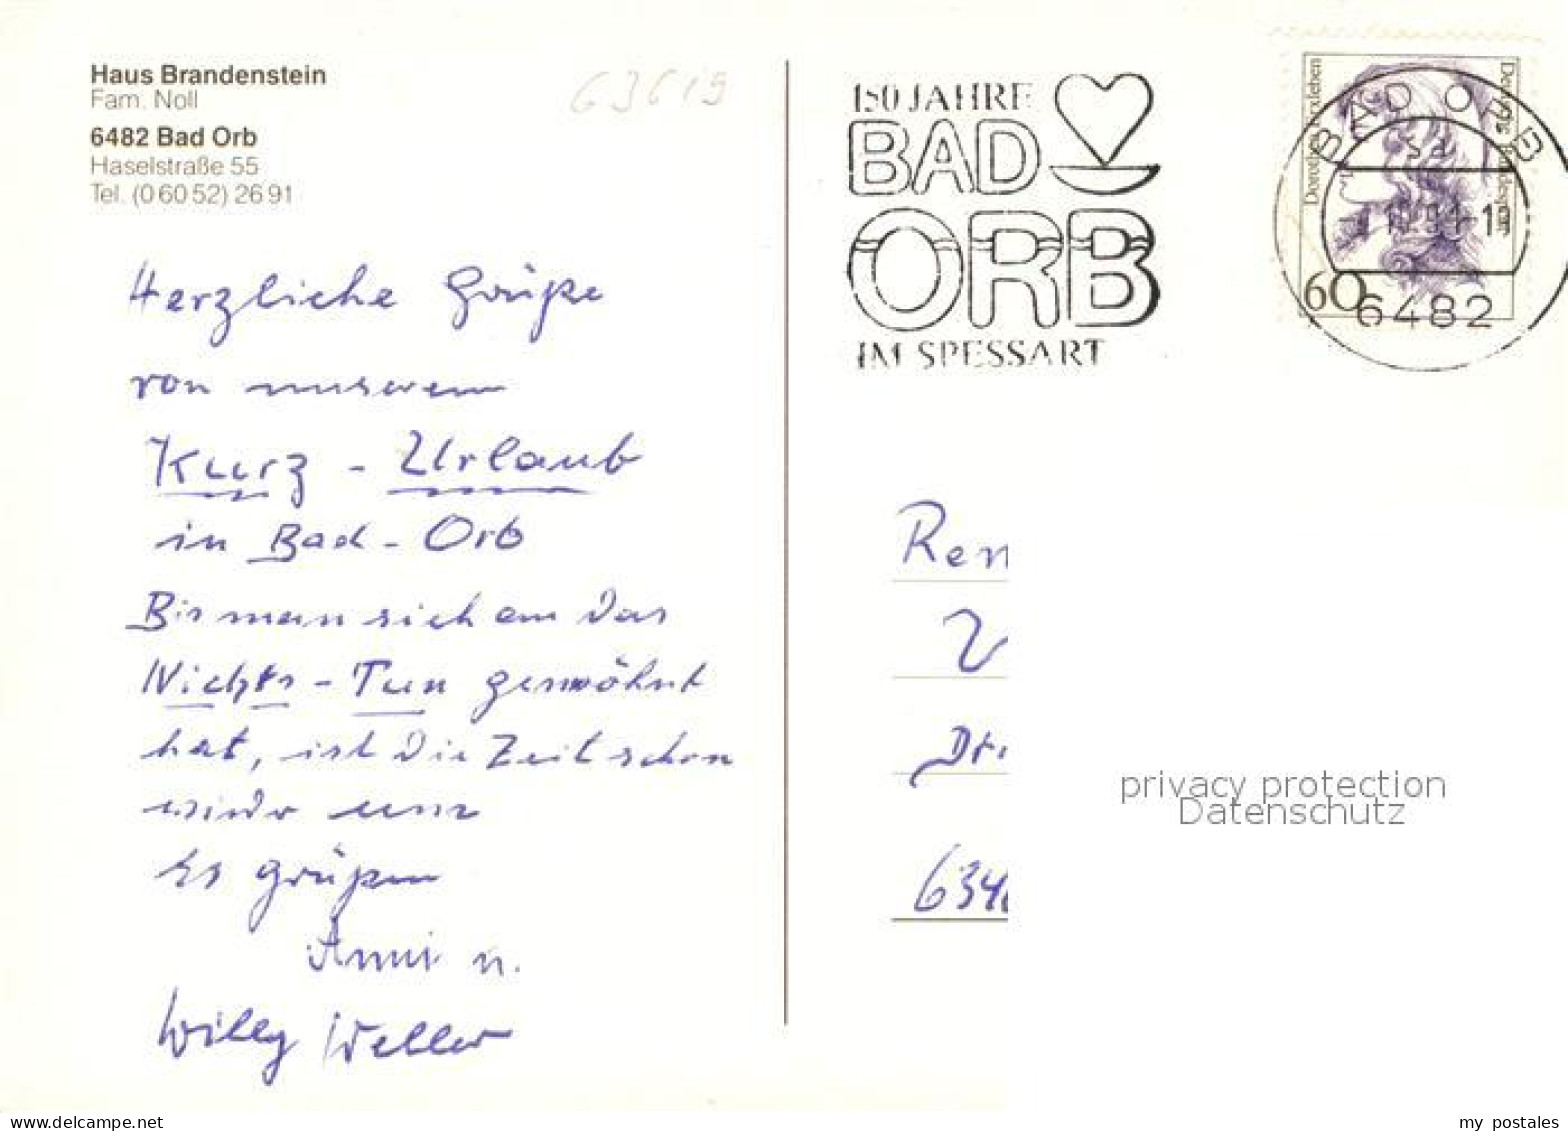 Haus Brandenstein
Fam. Noll
6482 Bad Orb
Haselstraße 55
Tel. (0 60 52) 26 91
63619
Herzliche Grüße
von unserem
Kurz - Urlaub
in Bad - Orb
Bis man sich an das
Nichts - Tun gewöhnt
hat, ist die Zeit schon
wieder um
Es grüßen
Anni u.
Willy Weller
150 JAHRE
BAD
ORB
IM SPESSART
Deutsche Bundespost
Dorothea Erxleben
60
BAD ORB
6482
Ren
Dr.
634
privacy protection
Datenschutz
www.delcampe.net
my_postales